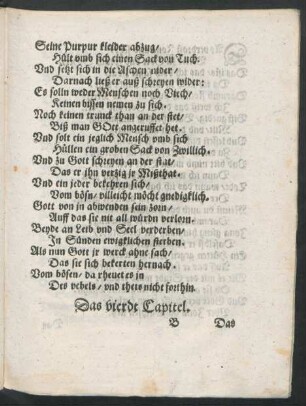 Seine Purpur kleider abzug/
Hült vmb sich einen Sack von Tuch.
Vnd setzt sich in die Aschen nider/
Darnach ließ er auß schreyen wider:
Es solln weder Menschen noch Viech/
Keinen bissen nemen zu sich.
Noch keinen tranck than an der stet/
Biß man GOtt angeruffet het.
Vnd solt ein jeglich Mensch vmb sich
Hüllen ein groben Sack von Zwillich.
Vnd zu Gott schreyen an der stat/
Das er ihn verzig jr Mißthat.
Vnd ein jeder bekehren sich/
Vom bösn/ villeicht möcht gnedigklich.
Gott von jn abwenden sein zorn/
Auff das sie nit all würdn verlorn.
Beyde an Leib vnd Seel verderben/
In Sünden ewigklichen sterben.
Als nun Gott jr werck ahne sach/
Das sie sich bekerten hernach.
Vom bösen/ da rheuet es jn
Des vebels/ vnd thets nicht forthin.
Das vierde Capitel.
B Das